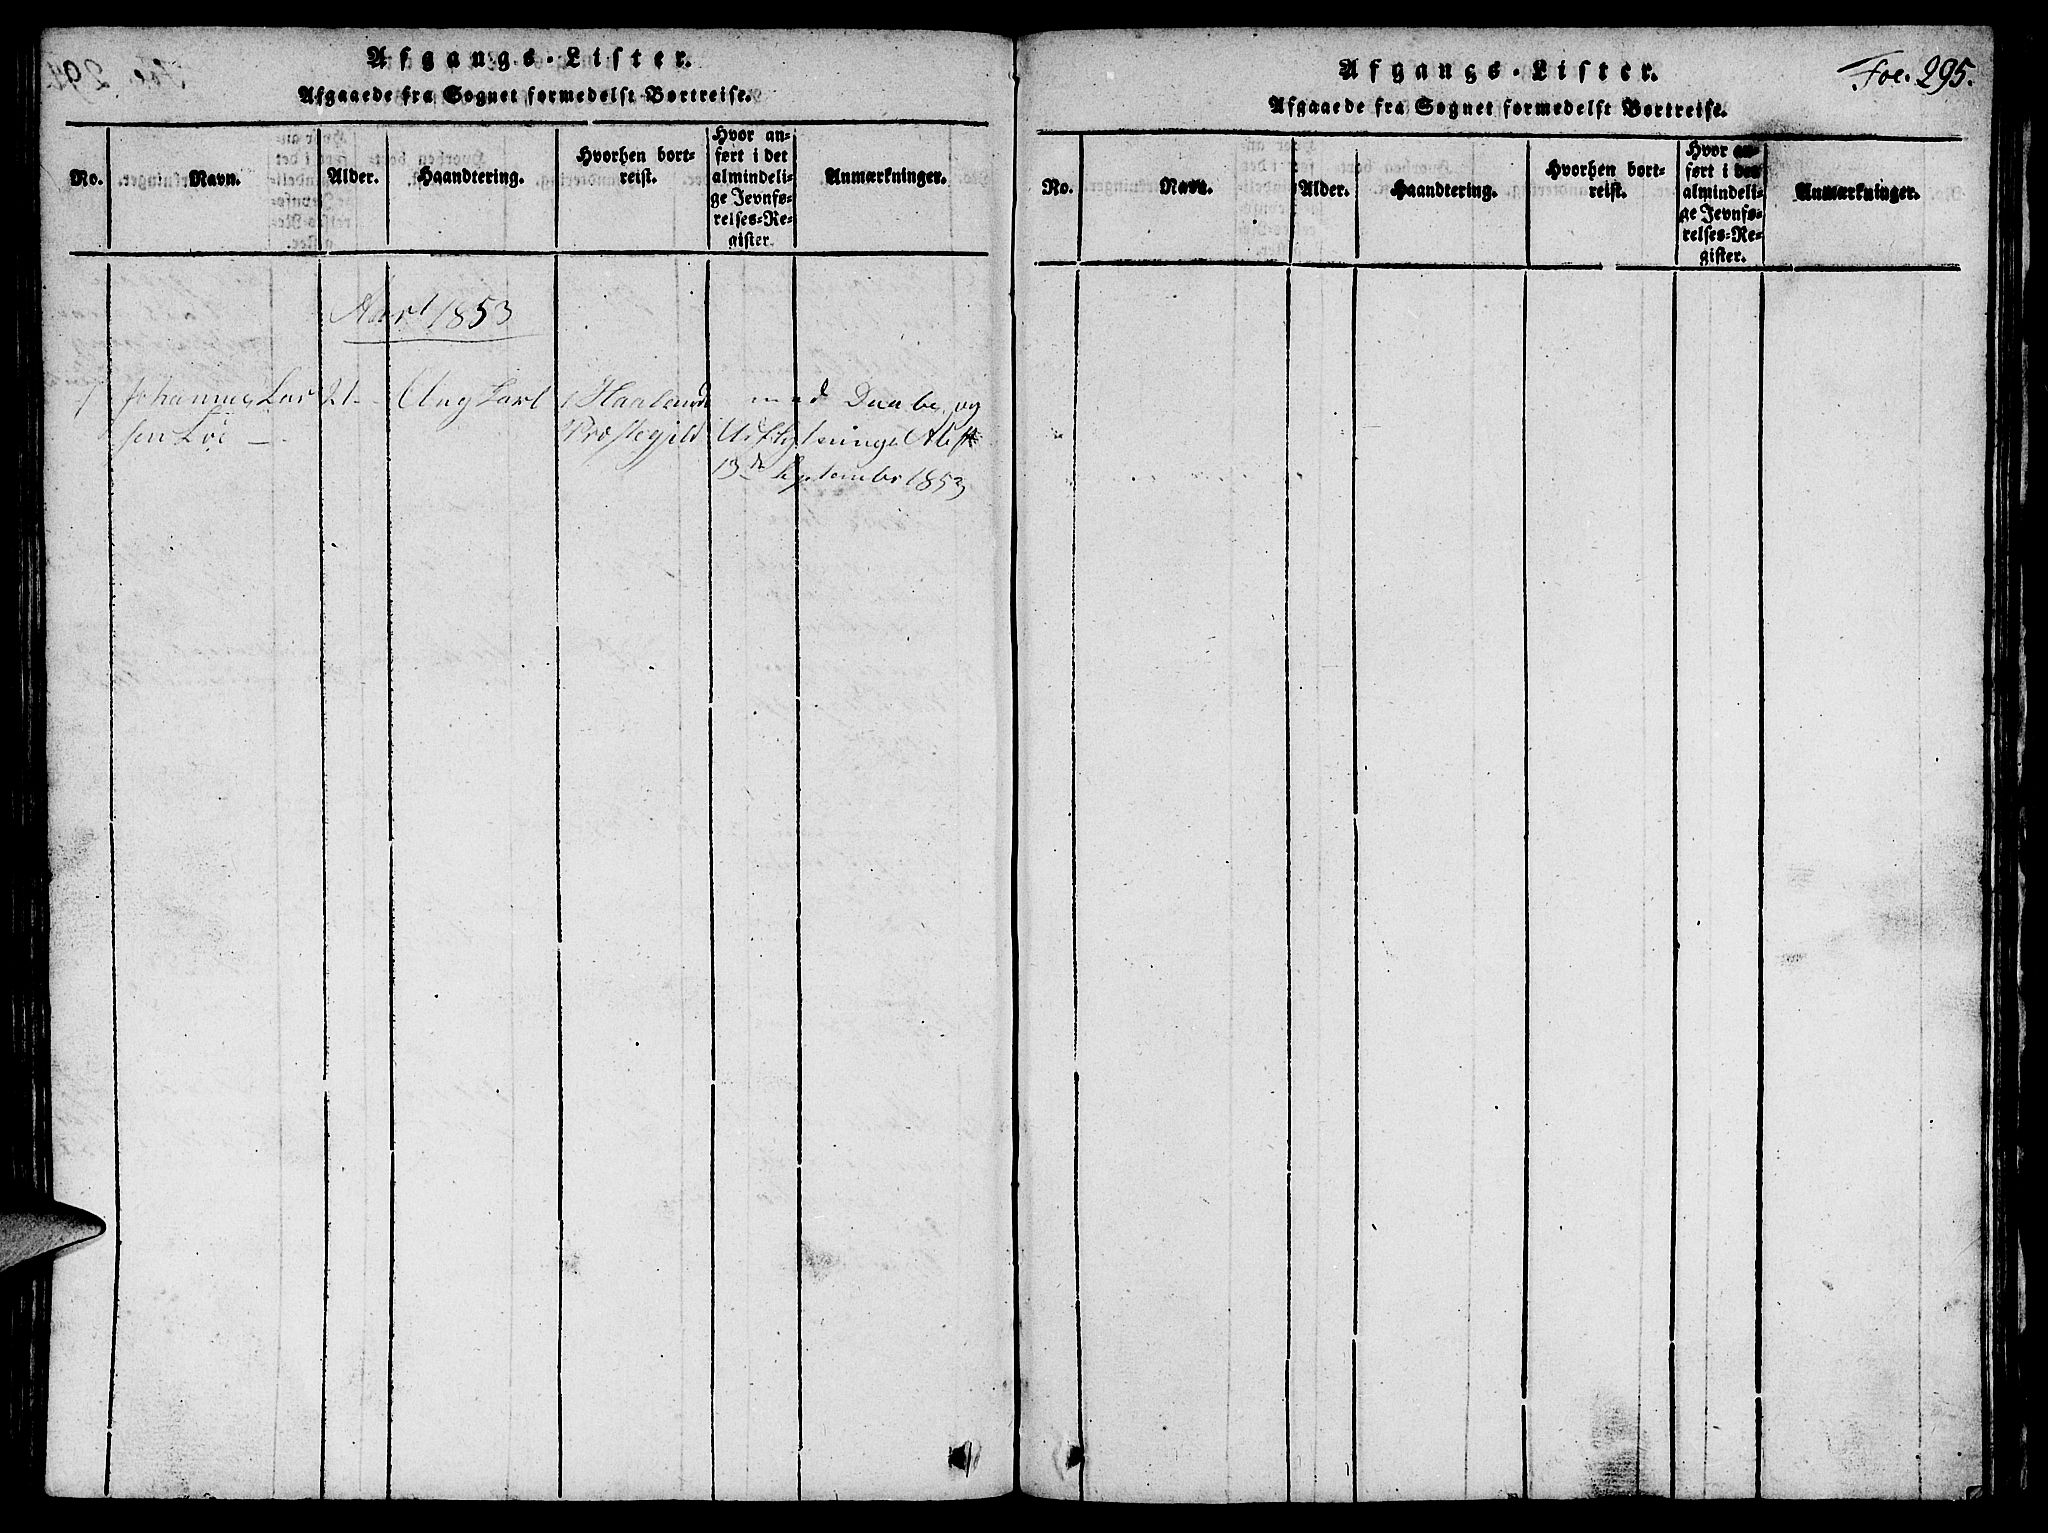 Afgangs-Lister.
Afgaaede fra Sognet formedelst Bortreise.
No.
Navn.
Alder.
Haandtering.
Hvorhen bort-
reist.
Hvor an-
ført i det
almindeli-
ge Jevnfø-
relses-Re-
gister.
Anmærkninger.
Aaret 1853
1 Johannes Lar 21 - Ung Karl i Haaland med Daabs og
sen Løe - Præstegjeld Udflytnings Att
13de September 1853
Afgangs-Lister.
Fol. 295.
Afgaaede fra Sognet formedelst Bortreise.
No.
Navn.
Alder.
Haandtering.
Hvorhen bort-
reist.
Hvor an-
ført i det
almindeli-
ge Jevnfø-
relses-Re-
gister.
Anmærkninger.